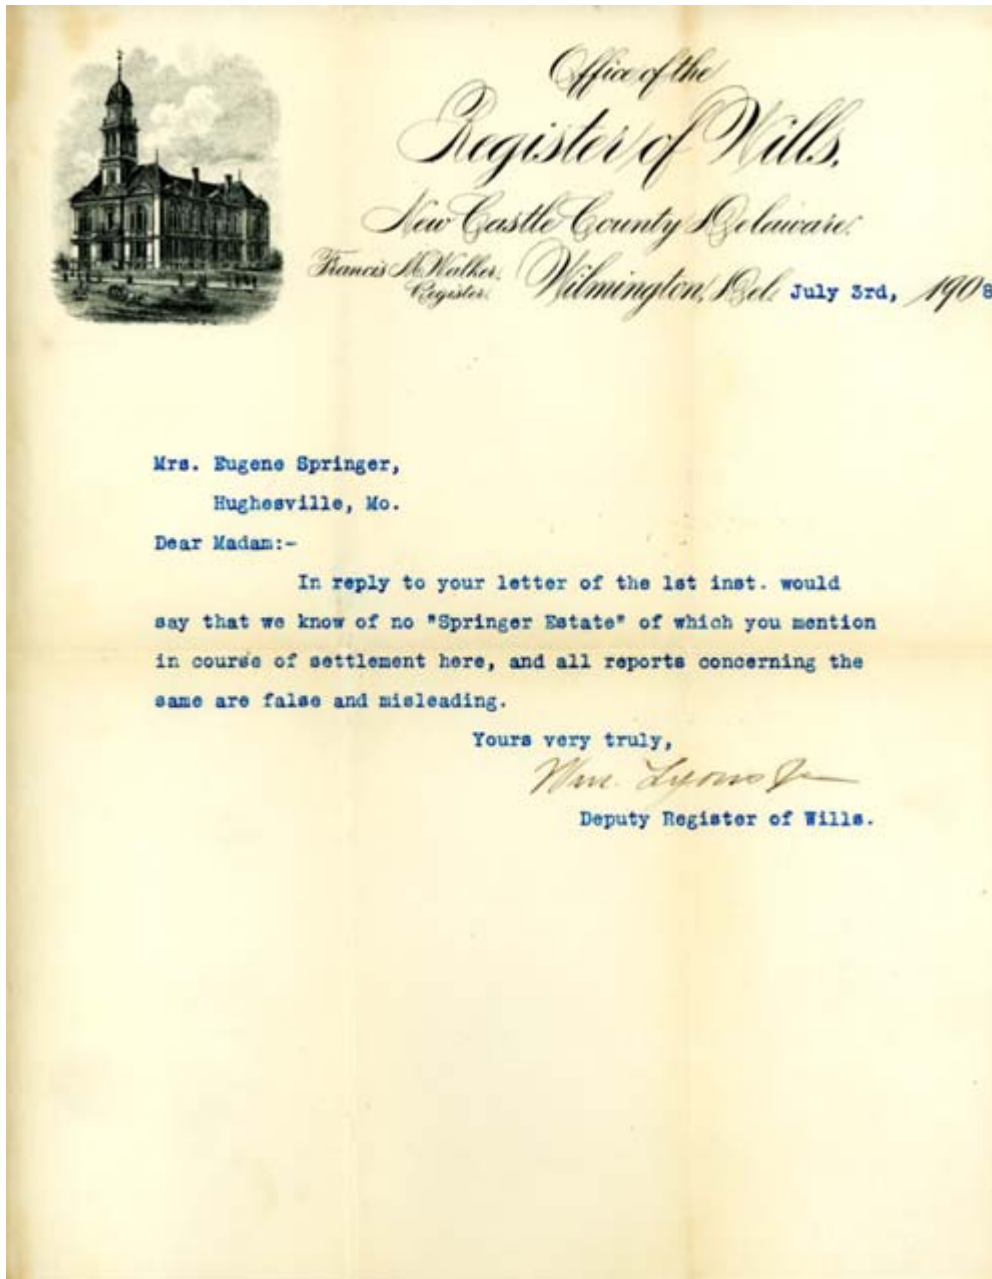 Office of the
Register of Wills,
New Castle County Delaware.
Francis M. Walker,
Register.
Wilmington, Del. July 3rd, 1908
Mrs. Eugene Springer,
Hughesville, Mo.
Dear Madam:-
In reply to your letter of the 1st inst. would
say that we know of no "Springer Estate" of which you mention
in course of settlement here, and all reports concerning the
same are false and misleading.
Yours very truly,
Wm. Lyons Jr
Deputy Register of Wills.